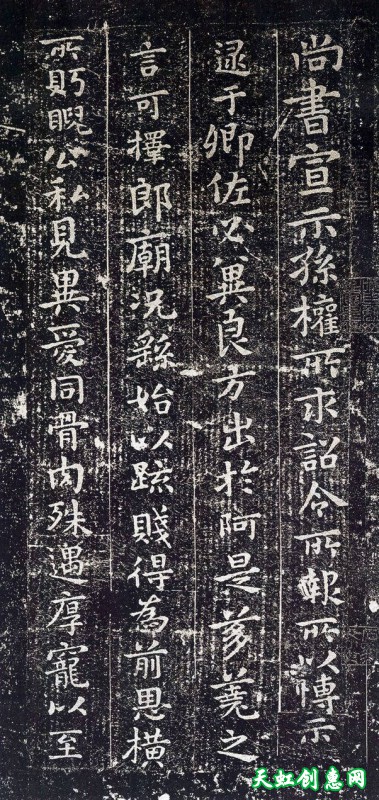 尚書宣示孫權所求詔令所報所以博示
逮于卿佐必冀良方出於阿是芻蕘之
言可擇郎廟況繇始以疏賤得為前恩橫
所盻睨公私見異愛同骨肉殊遇厚寵以至
天虹创意网